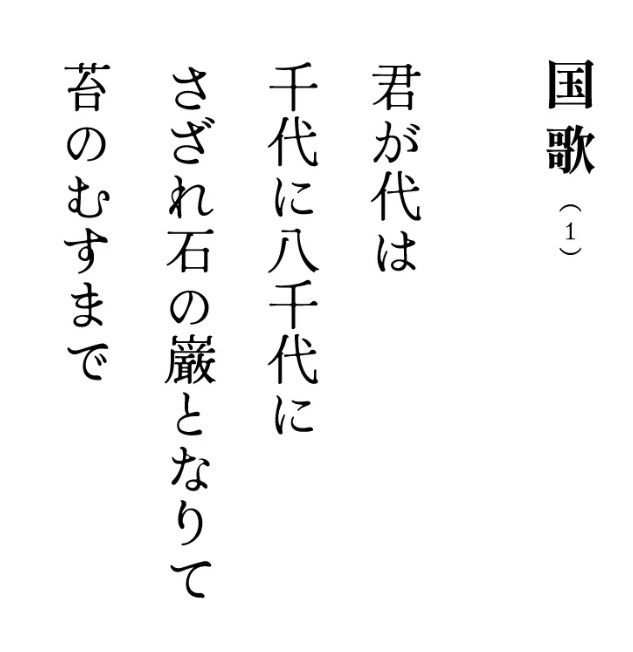 国歌（1）
君が代は
千代に八千代に
さざれ石の巌となりて
苔のむすまで